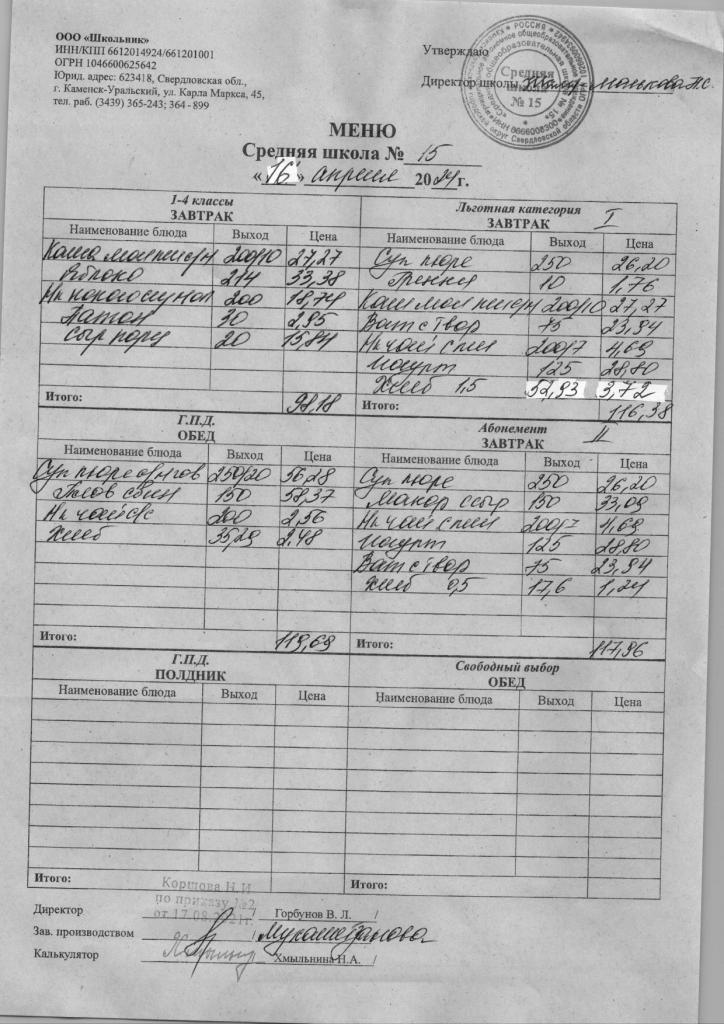 ООО «Школьник»
ИНН/КПП 6612014924/661201001
ОГРН 1046600625642
Юрид. адрес: 623418, Свердловская обл.,
г. Каменск-Уральский, ул. Карла Маркса, 45,
тел. раб. (3439) 365-243; 364 - 899
Утверждаю
Директор школы
Средняя
школа
№ 15
МЕНЮ
Средняя школа № 15
«16» апреля 2024г.
1-4 классы
ЗАВТРАК
Наименование блюда Выход Цена
Каша мол 200/10 27,27
Яблоко 214 33,38
Нп 200 18,74
Батон 30 2,95
Сыр порц 20 15,84
Итого: 98,18
Льготная категория I
ЗАВТРАК
Наименование блюда Выход Цена
Суп пюре 250 26,20
Гренки 10 1,76
Каша мол 200/10 27,27
Ват с твор 75 23,94
Нп чай слим 200/7 4,69
Йогурт 125 28,80
Хлеб 1,5 52,93 3,72
Итого: 116,38
Г.П.Д.
ОБЕД
Наименование блюда Выход Цена
Суп пюре 250/20 56,28
Плов свин 150 58,37
Нп чай с/с 200 2,56
Хлеб 35,29 2,48
Итого: 119,69
Абонемент II
ЗАВТРАК
Наименование блюда Выход Цена
Суп пюре 250 26,20
Макар с сыр 150 33,09
Нп чай слим 200/7 4,69
Йогурт 125 28,80
Ват с твор 75 23,94
Хлеб 0,5 17,6 1,24
Итого: 117,96
Г.П.Д.
ПОЛДНИК
Наименование блюда Выход Цена
Итого:
Свободный выбор
ОБЕД
Наименование блюда Выход Цена
Итого:
Коршова Н.И
по приказу №2
Директор / Горбунов В. Л. /
Зав. производством / Мухаметзанова
Калькулятор Хмыльнина Н.А. /